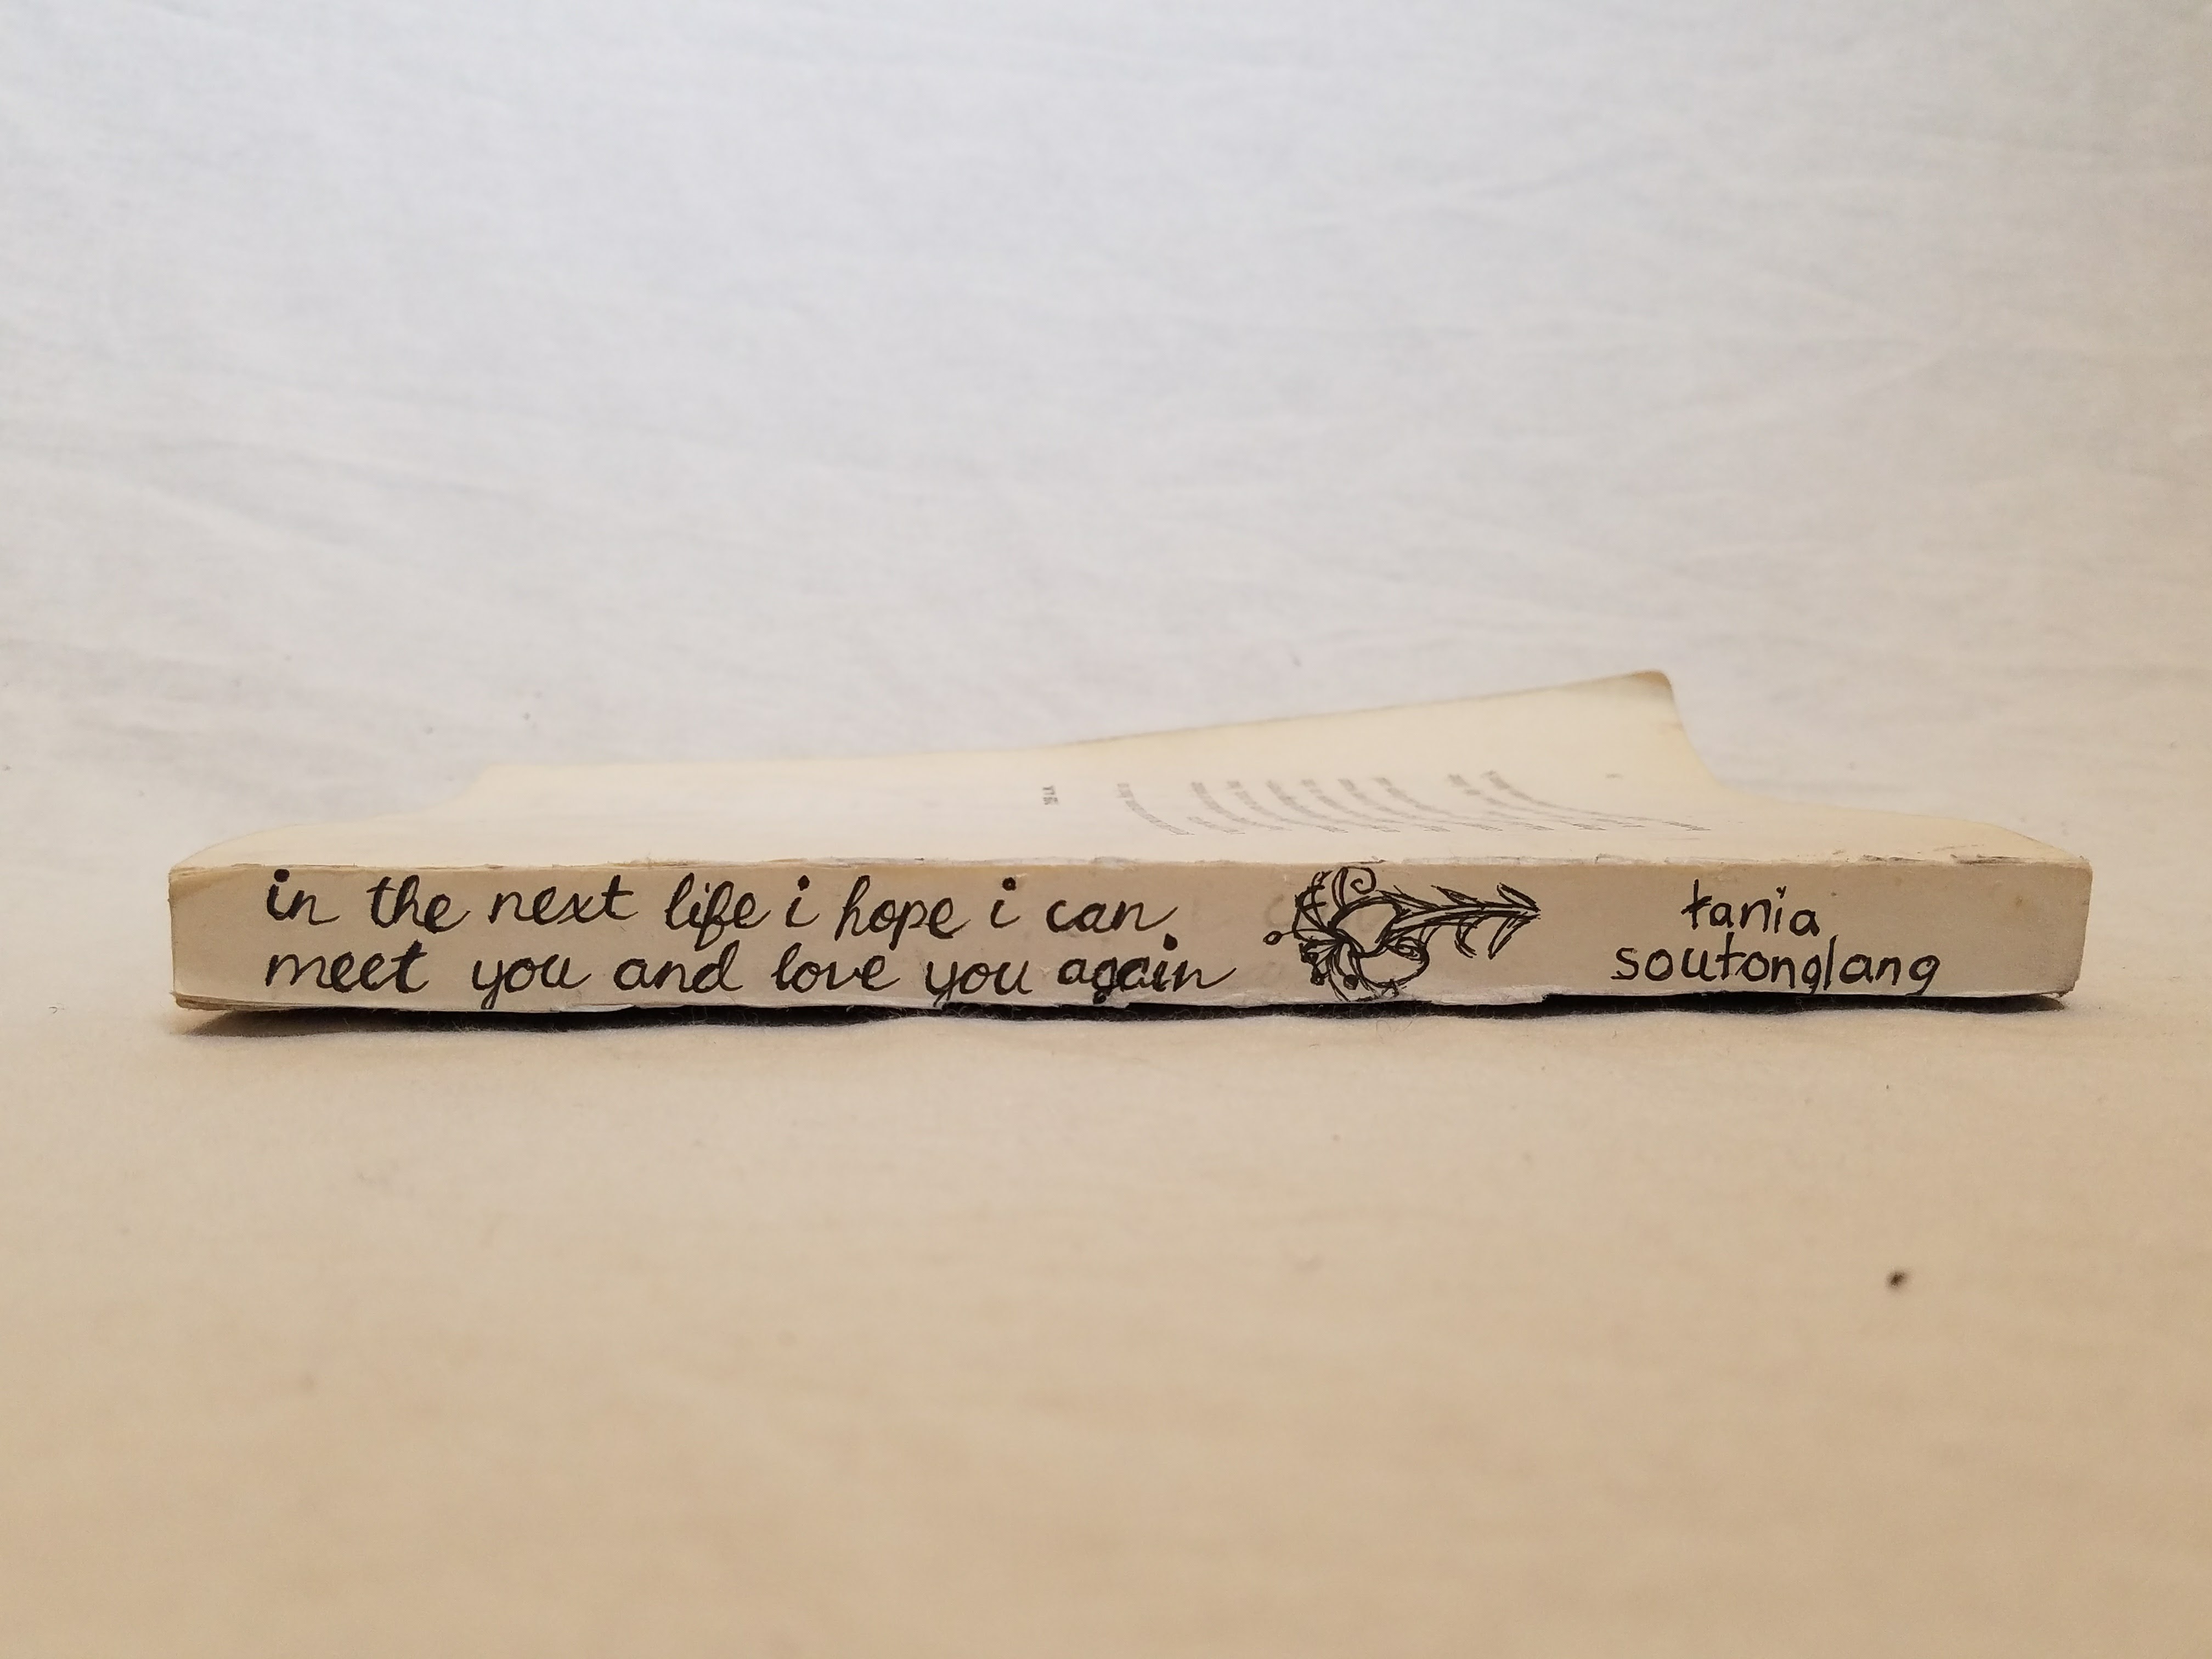 in the next life i hope i can
meet you and love you again
tania
soutonglang